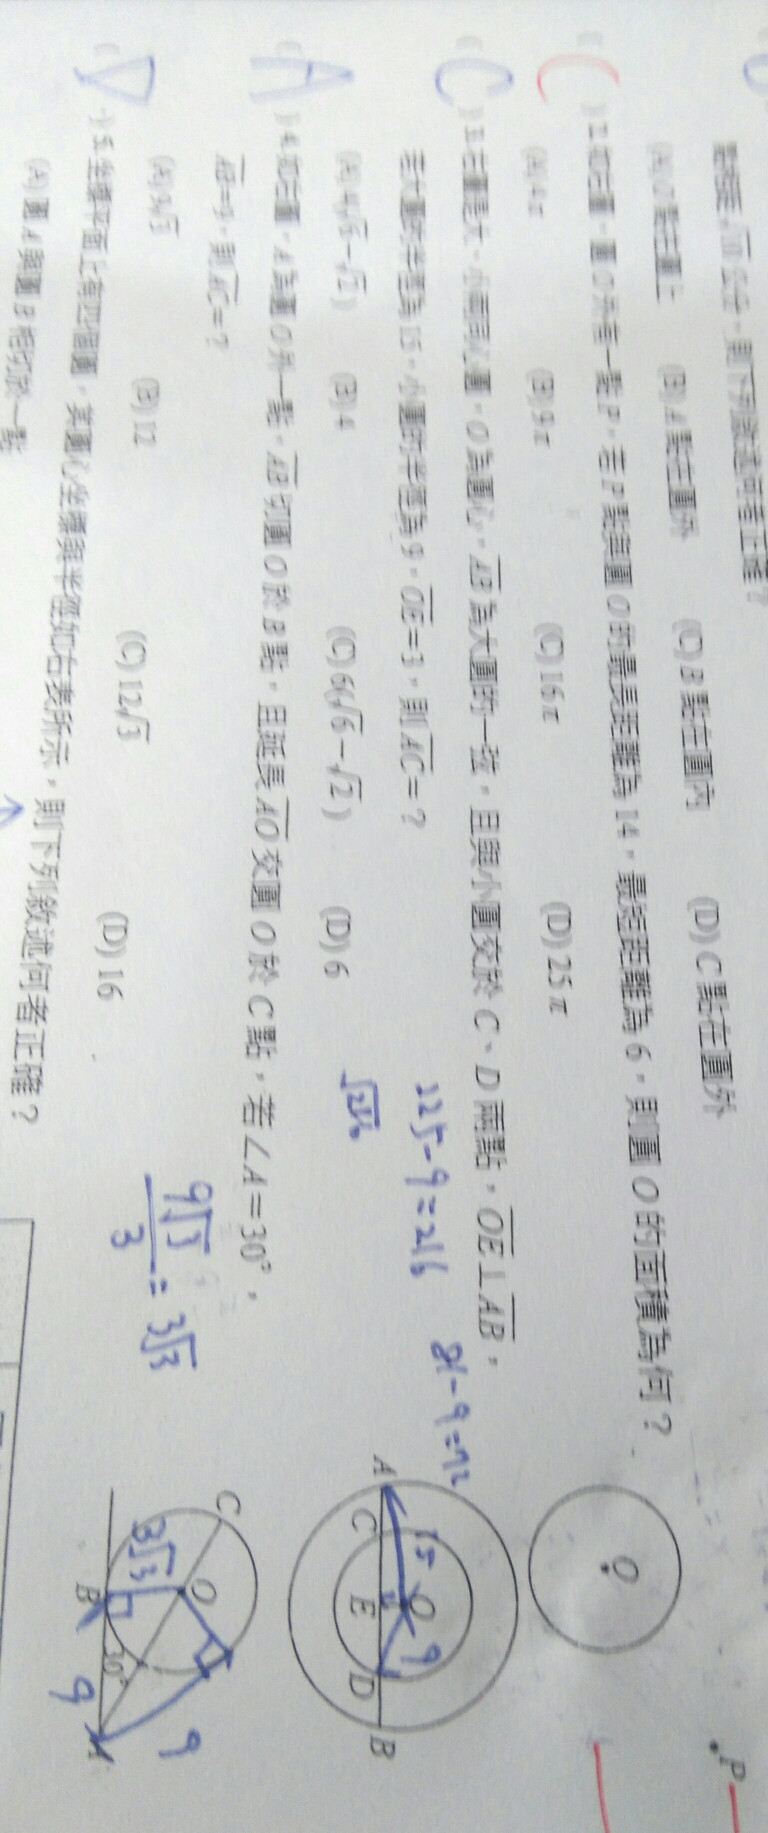 點在圓上 (B) A點在圓外 (C) B點在圓內 (D) C點在圓外
C
2.如右圖,圓O外有一點P,若P點與圓O的最長距離為14,最短距離為6,則圓O的面積為何?
(A) 4π (B) 9π (C) 16π (D) 25π
O
P
C
3.右圖是大、小兩同心圓,O為圓心,AB為大圓的一弦,且與小圓交於C、D兩點,OE⊥AB,
若大圓的半徑為15,小圓的半徑為9,OE=3,則AC=?
225-9=216 81-9=72
(A) 4(√6-√2) (B) 4 (C) 6(√6-√2) (D) 6
√216
A C E D B
O
15 9
A
4.如右圖,A為圓O外一點,AB切圓O於B點,且延長AO交圓O於C點,若∠A=30°,
AB=9,則AC=?
(A) 9√3 (B) 12 (C) 12√3 (D) 16
9√3/3=3√3
C O B A
3√3 30° 9 9
D
5.坐標平面上有四個圓,其圓心坐標與半徑如右表所示,則下列敘述何者正確?
(A) 圓A與圓B相切於一點